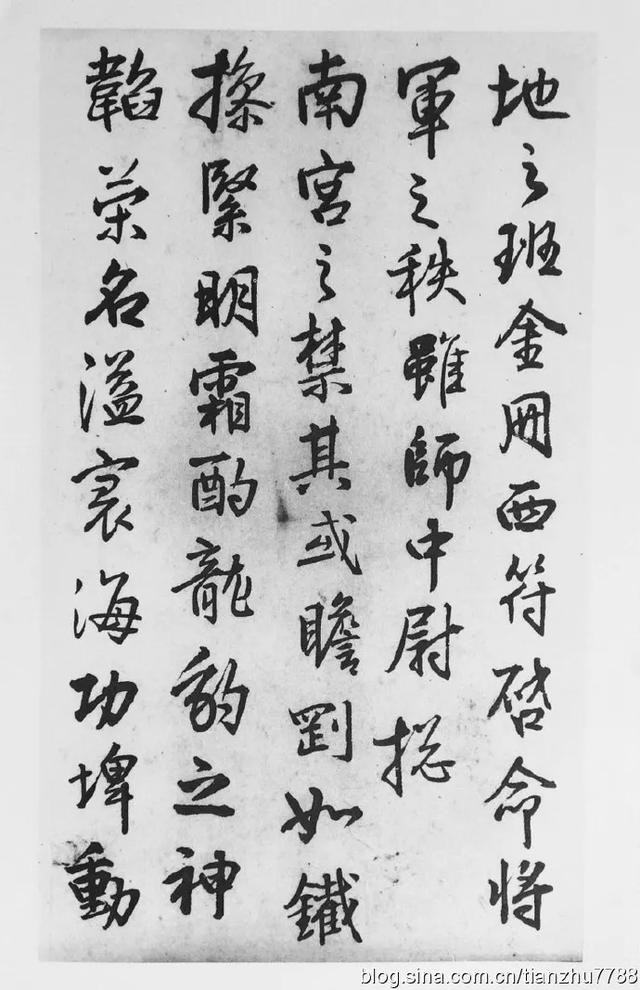 地之班金冊西符啓命將
軍之秩雖師中尉揔
南宮之禁其或瞻劉如鐵
操緊明霜酌龍豹之神
韜榮名溢寰海功埤動
blog.sina.com.cn/tianzhu7788